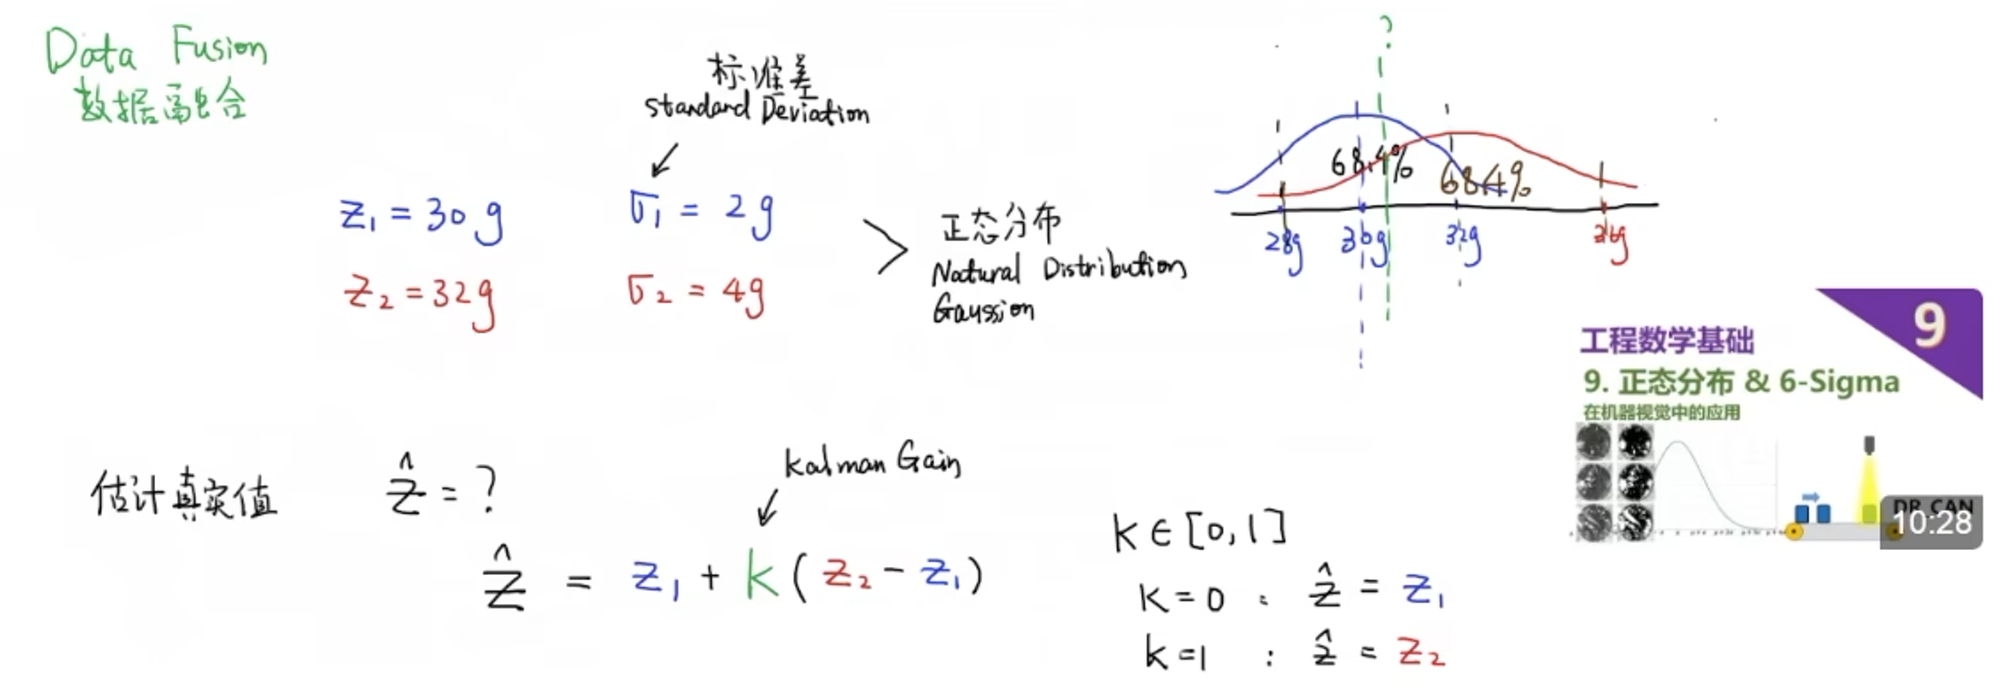 Data Fusion
数据融合
标准差
Standard Deviation
z₁ = 30g
σ₁ = 2g
z₂ = 32g
σ₂ = 4g
正态分布
Natural Distribution
Gaussion
?
68.4%
68.4%
28g
30g
32g
36g
9
工程数学基础
9. 正态分布 & 6-Sigma
在机器视觉中的应用
DR_CAN
10:28
估计真实值
ẑ = ?
Kalman Gain
ẑ = z₁ + k(z₂ - z₁)
k ∈ [0,1]
k = 0 : ẑ = z₁
k = 1 : ẑ = z₂